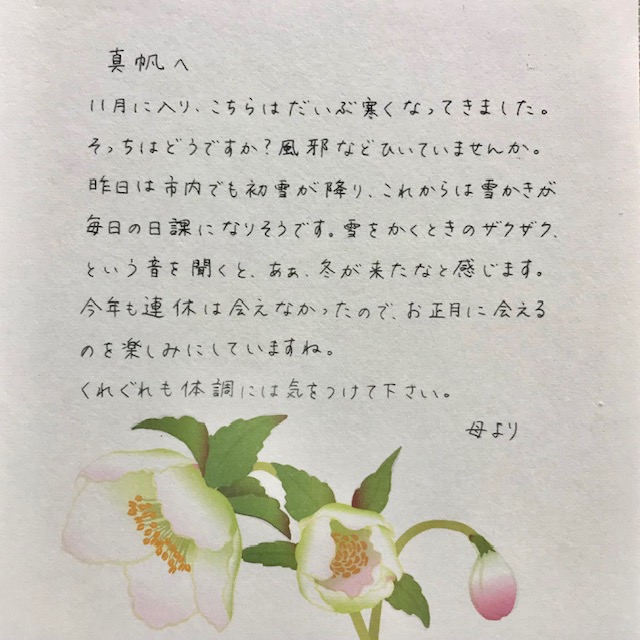 真帆へ
11月に入り、こちらはだいぶ寒くなってきました。
そっちはどうですか？風邪などひいていませんか。
昨日は市内でも初雪が降り、これからは雪かきが
毎日の日課になりそうです。雪をかくときのザクザク、
という音を聞くと、あぁ、冬が来たなと感じます。
今年も連休は会えなかったので、お正月に会える
のを楽しみにしていますね。
くれぐれも体調には気をつけて下さい。
母より